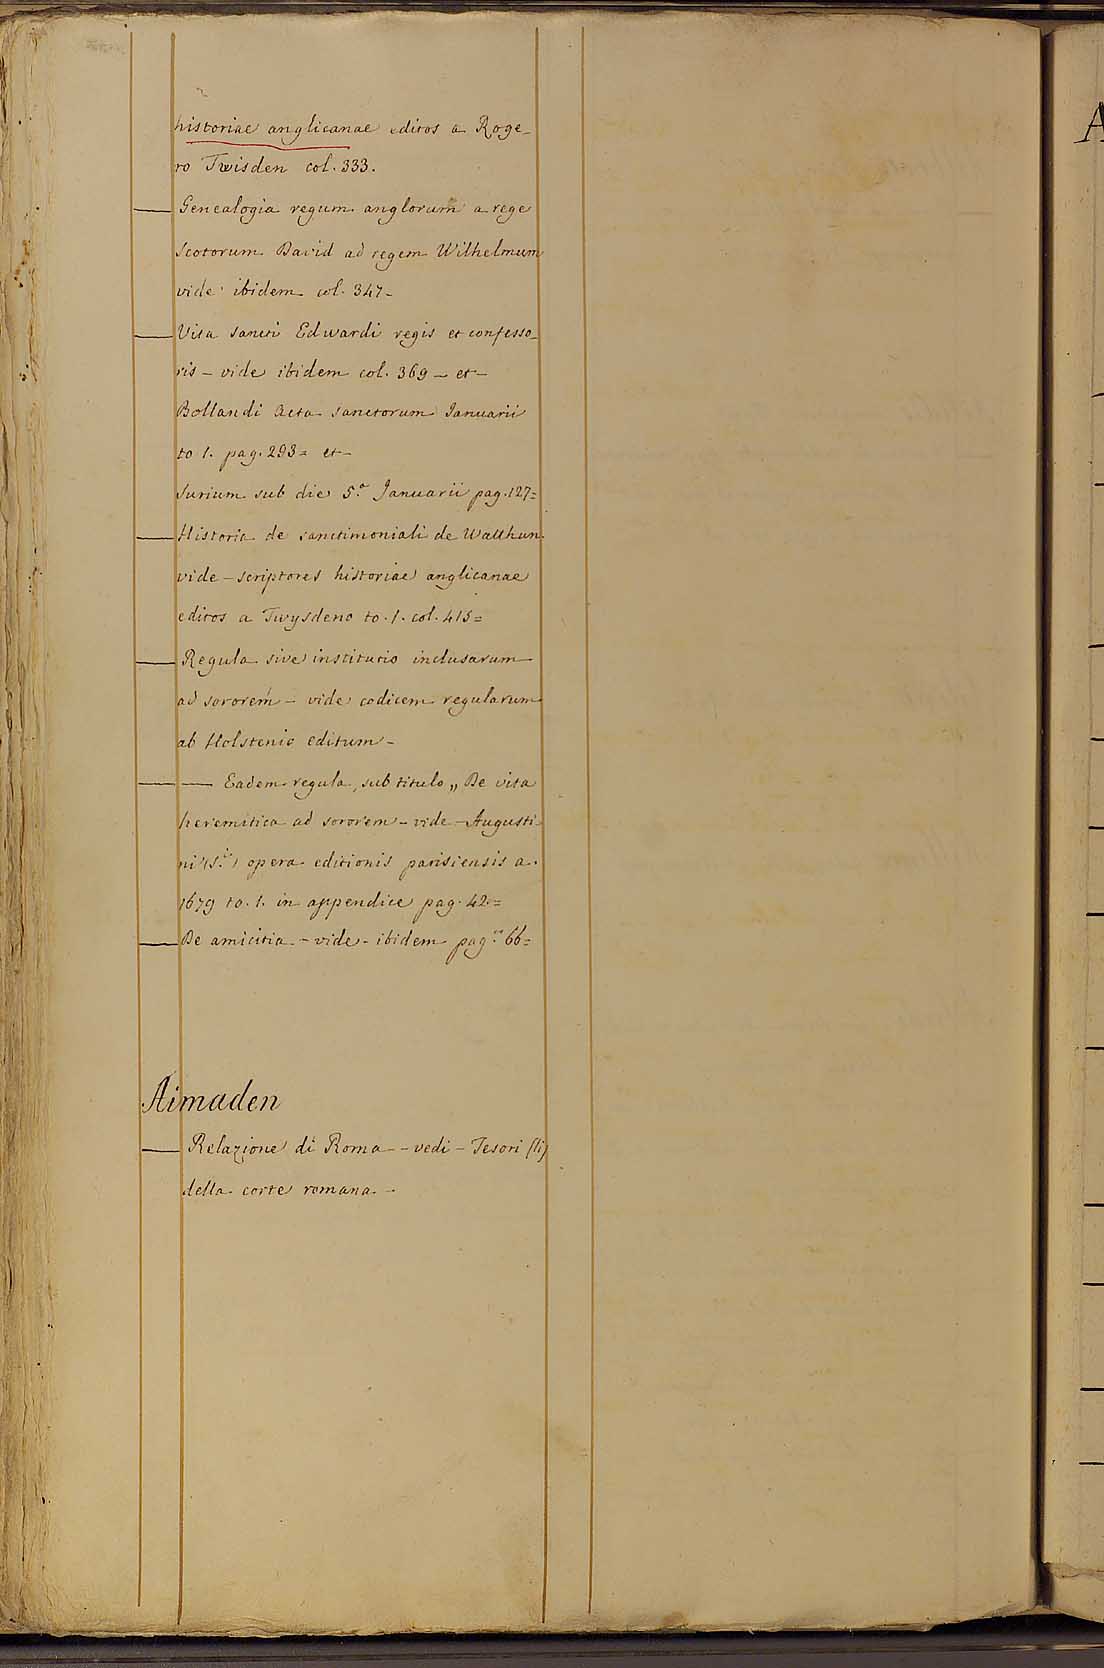 historiae anglicanae editos a Roge-
ro Twisden col. 333.
— Genealogia regum anglorum a rege
scotorum David ad regem Wilhelmum
vide ibidem col. 347-
— Vita sancti Edwardi regis et confesso-
ris - vide ibidem col. 369 - et -
Bollandi Acta sanctorum Januarii
to 1. pag. 293= et -
Surium sub die 5.ª Januarii pag. 127=
— Historia de sanctimoniali de Watthun.
vide - scriptores historiae anglicanae
editos a Twysdeno to. 1. col. 415=
— Regula sive institutio inclusarum
ad sororem - vide codicem regularum
ab Holstenio editum -
— — Eadem regula, sub titulo „ De vita
heremitica ad sororem - vide - Augusti-
ni (S.i) opera editionis parisiensis a.
1679 to. 1. in appendice pag. 42.=
— De amicitia - vide - ibidem pag.na 66=
Aimaden
— Relazione di Roma - - vedi - Tesori (li)
della corte romana. -
A